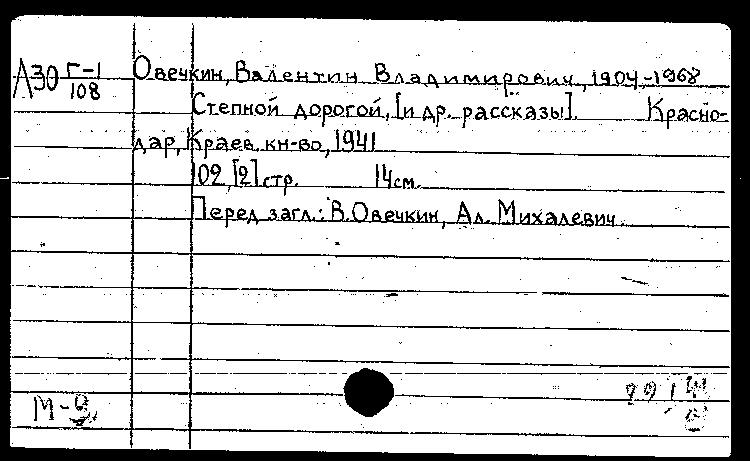 А30 Г-1/108 Овечкин, Валентин Владимирович, 1904-1968
Степной дорогой, [и др. рассказы]. Красно-
дар, Краев. кн-во, 1941
102, [2] стр. 14 см.
Перед загл.: В. Овечкин, Ал. Михалевич.